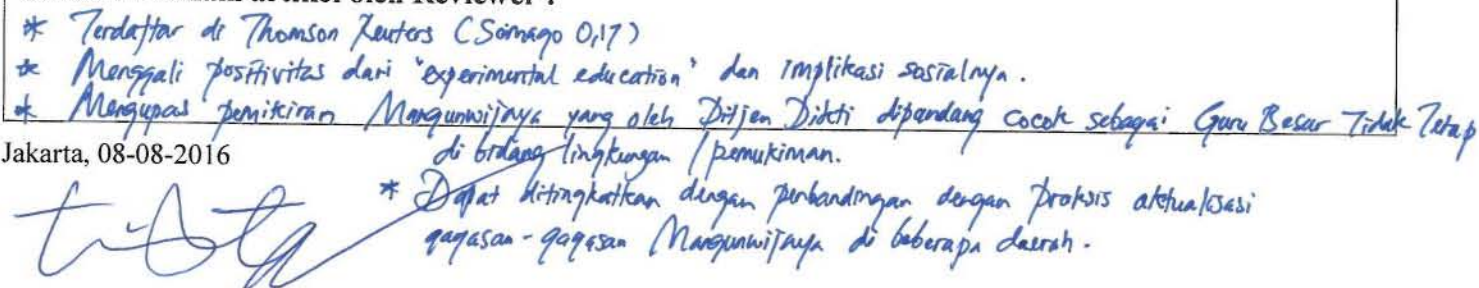 oleh Reviewer :
* Terdaftar di Thomson Reuters (Scimago 0,17)
* Menggali positivitas dari "experimental education" dan implikasi sosialnya.
* Mengupas pemikiran Mangunwijaya yang oleh Ditjen Dikti dipandang cocok sebagai Guru Besar Tidak Tetap
di bidang lingkungan / pemukiman.
Jakarta, 08-08-2016
* Dapat ditingkatkan dengan perbandingan dengan praksis aktualisasi
gagasan-gagasan Mangunwijaya di beberapa daerah.